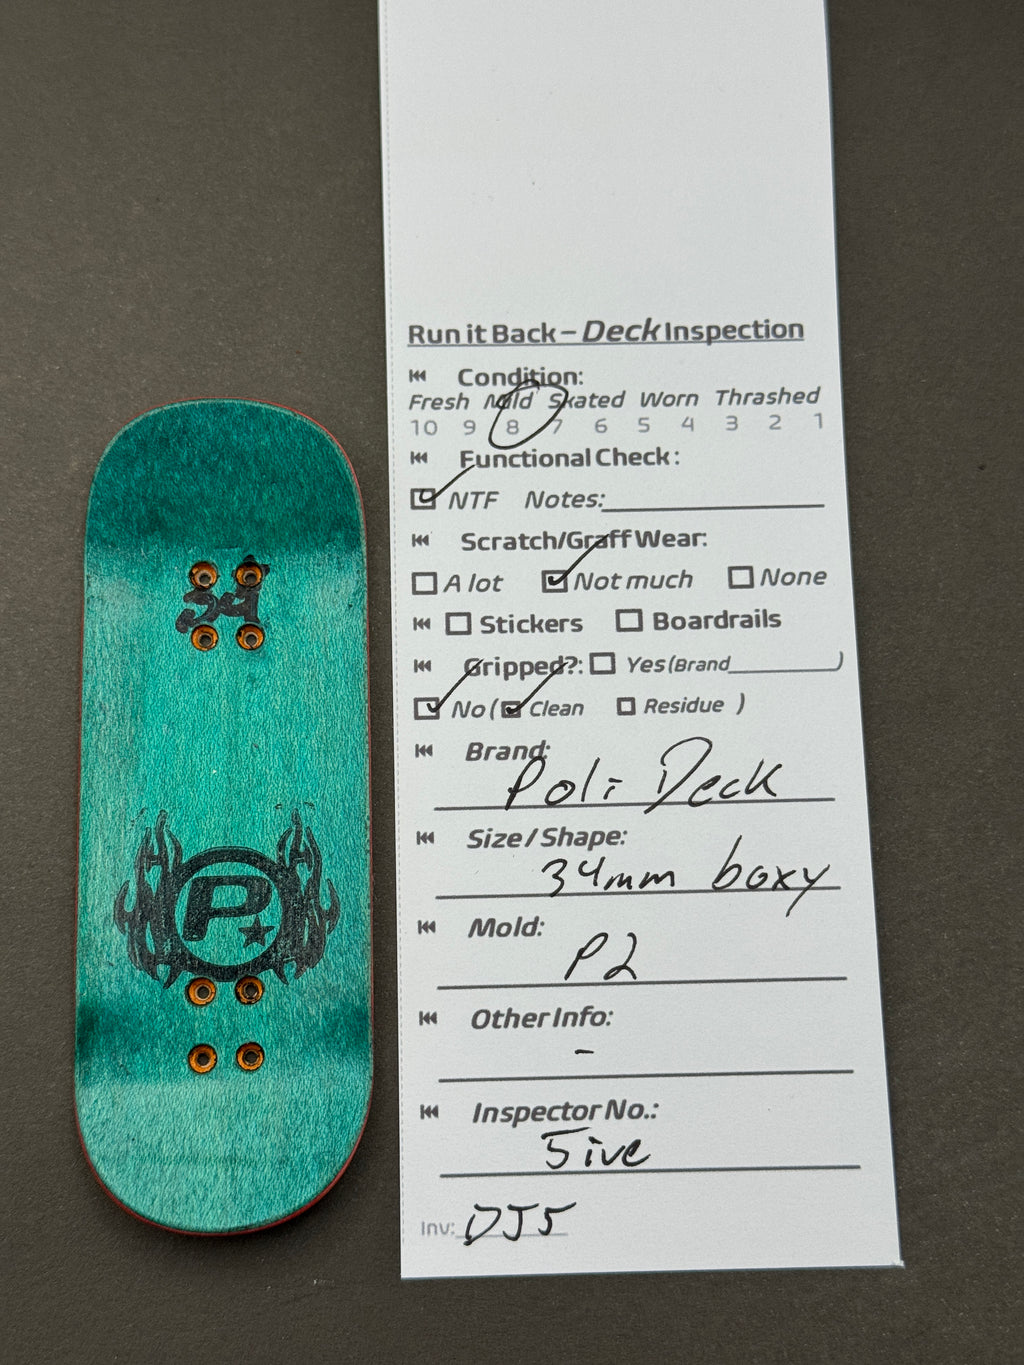 34
P
Run it Back – Deck Inspection
Condition:
Fresh Mild Skated Worn Thrashed
10 9 8 7 6 5 4 3 2 1
Functional Check:
NTF Notes:
Scratch/Graff Wear:
A lot Not much None
Stickers Boardrails
Gripped?: Yes (Brand )
No ( Clean Residue )
Brand:
Poli Deck
Size / Shape:
34mm boxy
Mold:
P2
Other Info:
-
Inspector No.:
5ive
Inv: DJ5